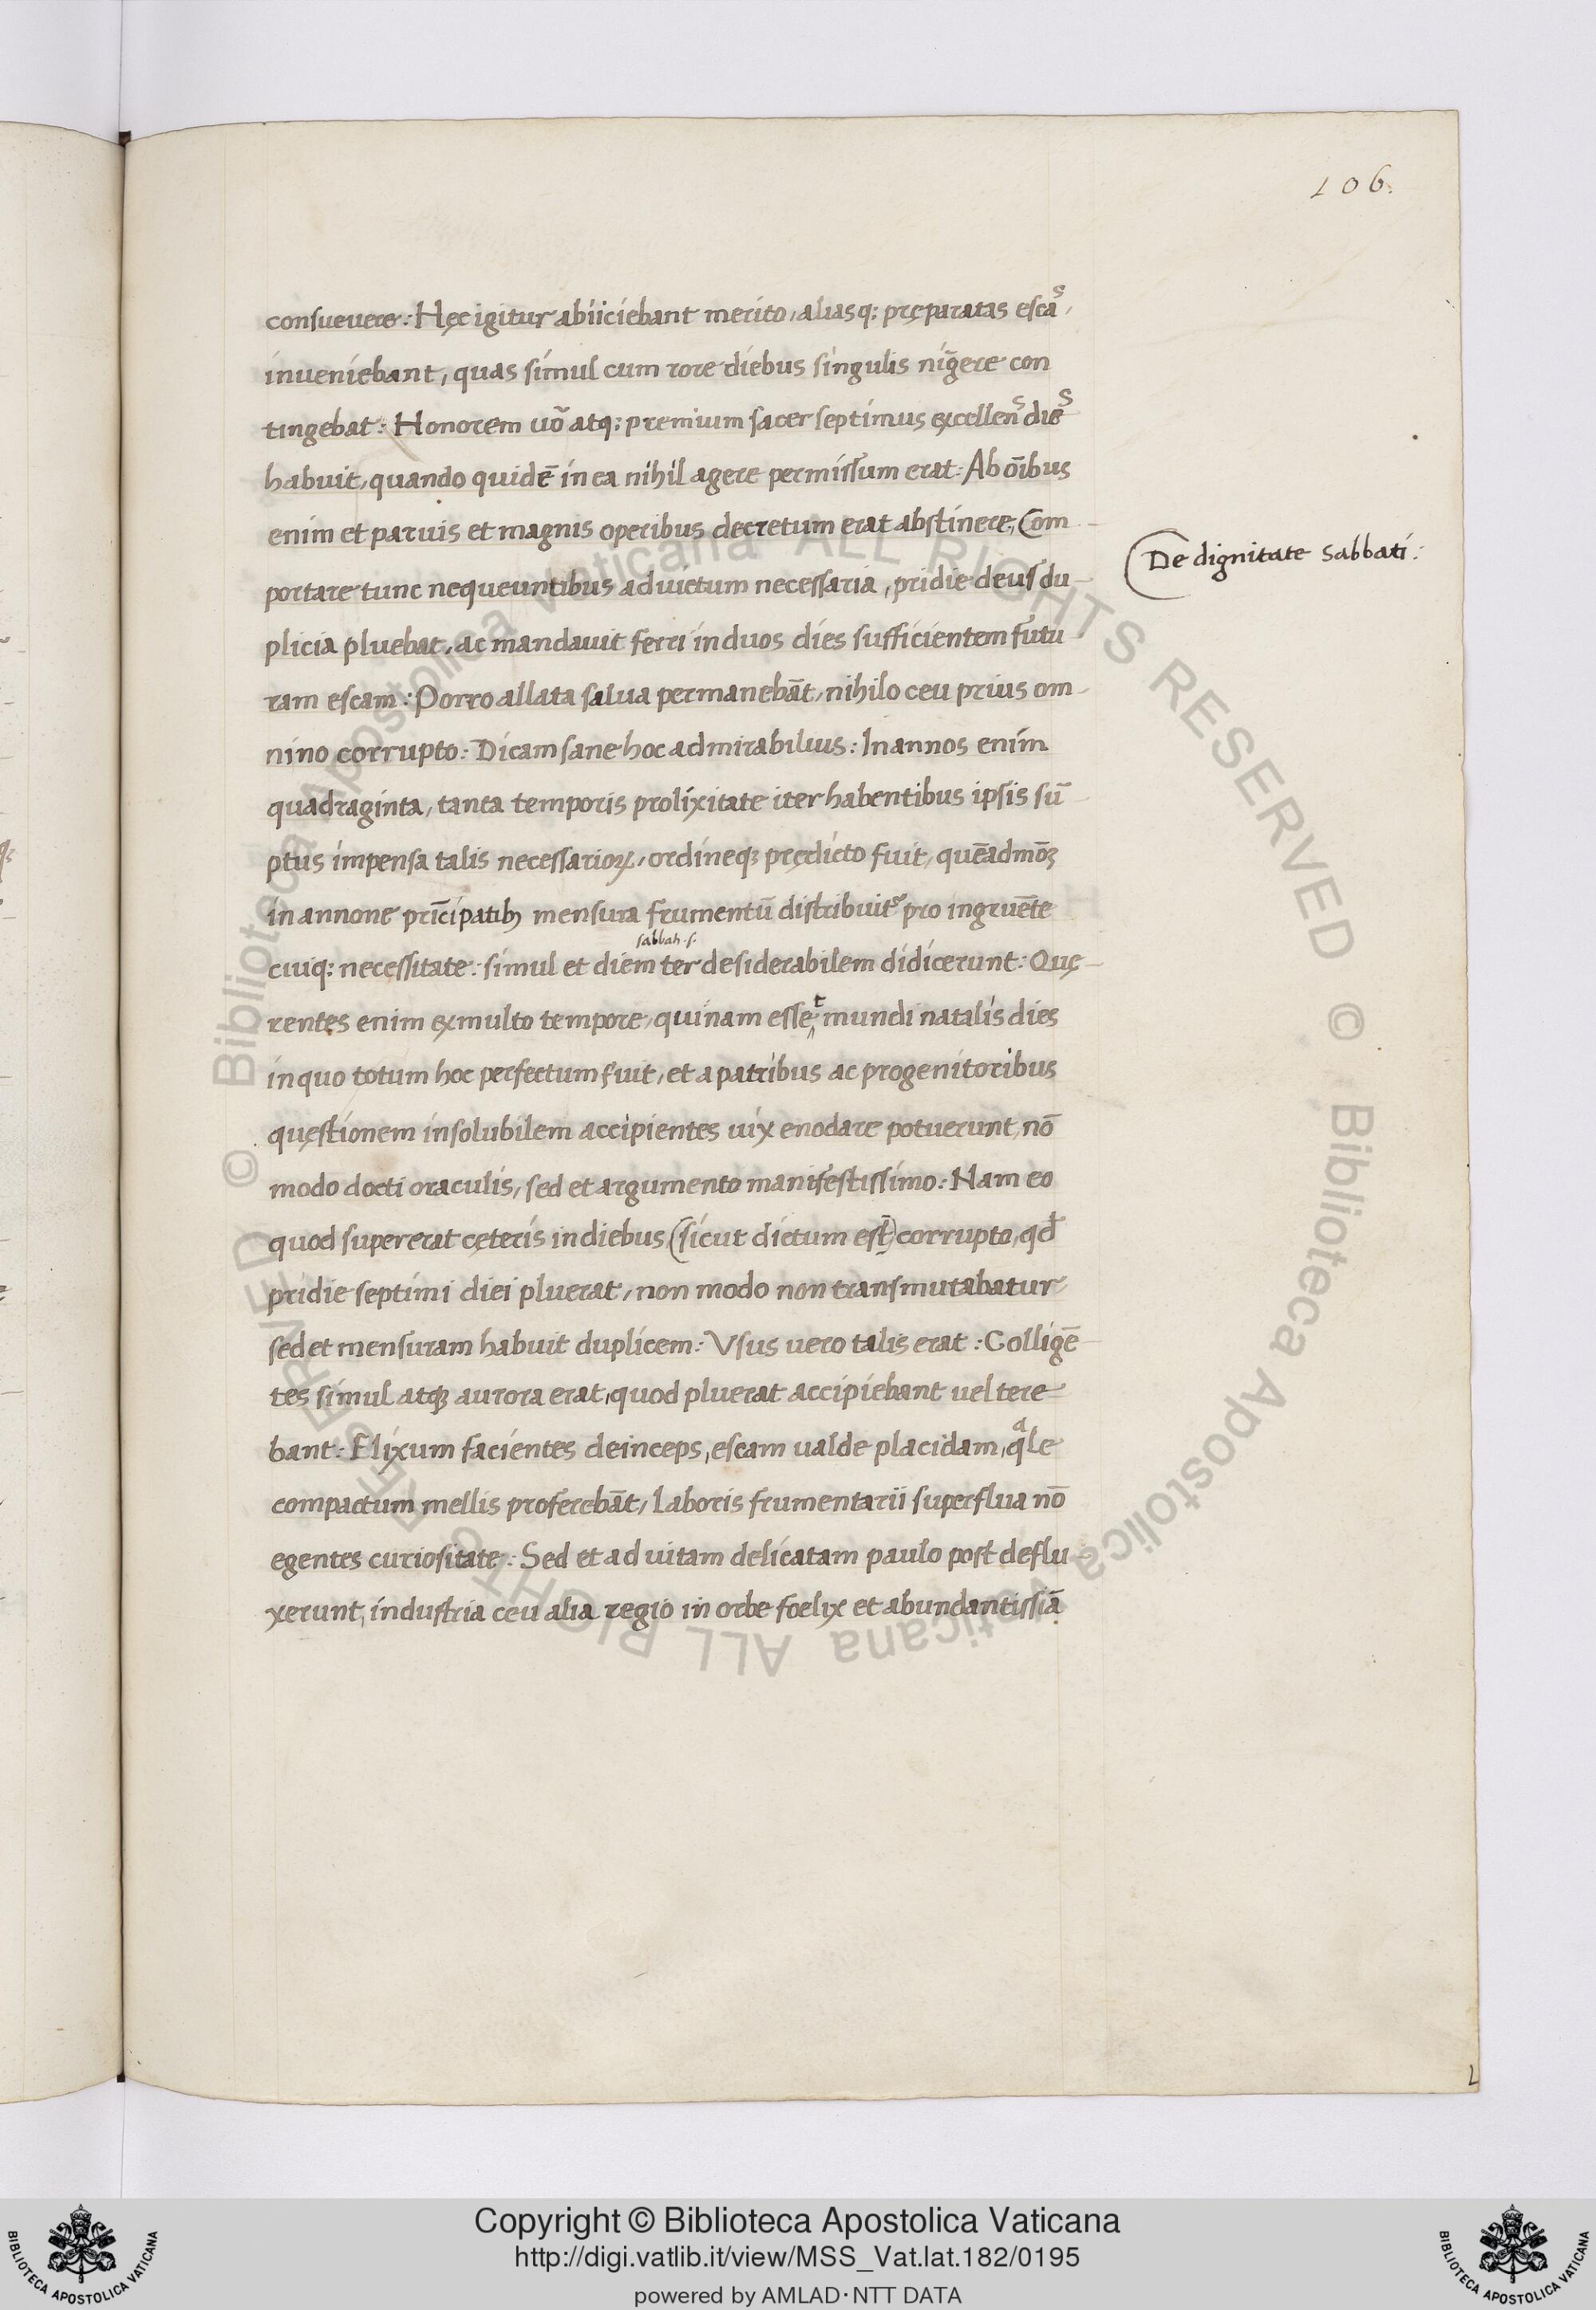 106.
consuevere: Hęc igitur abiiciebant merito, aliasq: pręparatas escas,
inveniebant, quas simul cum rore diebus singulis nīgere con
tingebat: Honorem uō atq: premium sacer septimus excellens dies
habuit, quando quidē in ea nihil agere permissum erat: Ab oībus
enim et paruis et magnis operibus decretum erat abstinere, Com-
De dignitate Sabbati:
portare tunc nequeuntibus ad uictum necessaria, pridie deus du-
plicia pluebat, ac mandauit ferri in duos dies sufficientem futu-
ram escam: Porro allata salua permanebāt, nihilo ceu prius om-
nino corrupto: Dicam sane hoc admirabilius: In annos enim
quadraginta, tanta temporis prolixitate iter habentibus ipsis sū-
ptus impensa talis necessarioꝝ, ordineqꝫ prędicto fuit, quēadmōꝫ
in annone prīcipatibꝫ mensura frumentū distribuitᷣ pro ingruēte
sabbati .s.
cuiq: necessitate: simul et diem ter desiderabilem didicerunt: Quę-
rentes enim ex multo tempore, quinam esset mundi natalis dies
in quo totum hoc perfectum fuit, et a patribus ac progenitoribus
quęstionem insolubilem accipientes uix enodare potuerunt, nō
modo docti oraculis, sed et argumento manifestissimo: Nam eo
quod supererat cęteris in diebus (sicut dictum est) corrupto, qđ
pridie septimi diei pluerat, non modo non transmutabatur
sed et mensuram habuit duplicem: Vsus uero talis erat: Colligē-
tes simul atqꝫ aurora erat, quod pluerat accipiebant uel tere
bant: Elixum facientes deinceps, escam ualde placidam, qͣle
compactum mellis proferebāt, laboris frumentarii superflua nō
egentes curiositate: Sed et ad uitam delicatam paulo post deflu
xerunt, industria ceu alia regio in orbe foelix et abundantissiā
© Biblioteca Apostolica Vaticana ALL RIGHTS RESERVED
© Biblioteca Apostolica Vaticana ALL RIGHTS RESERVED
Copyright © Biblioteca Apostolica Vaticana
http://digi.vatlib.it/view/MSS_Vat.lat.182/0195
powered by AMLAD·NTT DATA
BIBLIOTECA APOSTOLICA VATICANA
BIBLIOTECA APOSTOLICA VATICANA